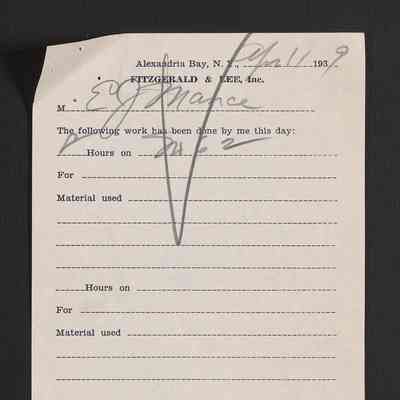 Alexandria Bay, N. Y., Apr 11 1939
FITZGERALD & LEE, Inc.
M E J Mance
The following work has been done by me this day:
Hours on M 62
For
Material used
Hours on
For
Material used